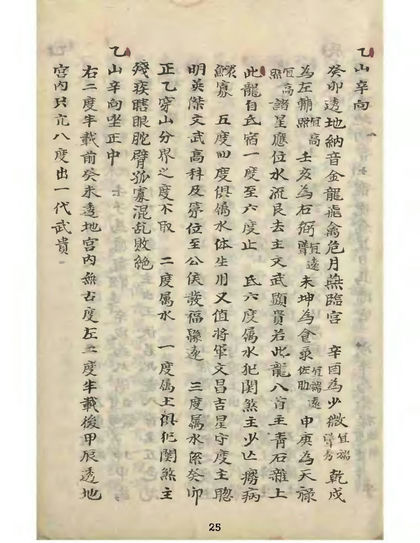 乙山辛向
癸卯透地納音金龍巵禽危月燕臨宮 辛酉為少微 乾戌
為左輔 壬亥為石弼 未坤為倉 申庚為天祿
照 諸星應位水流艮去主文武顯貴若此龍八首主青石雜土
此龍自氐宿一度至六度止 氐六度属水犯関煞主少亡癆病
鰥寡 五度四度俱属水体生用又值將軍文昌吉星守度主聰
明英傑文武高科及第位至公侯發福遠 三度属水係癸卯
正乙穿山分界之度不取 二度属水 一度属土俱犯関煞主
殘疾瞎眼跎臂孤寡混乱敗絕
乙山辛向坐正中
右二度半載前癸未透地宮內無古度左二度半載後甲辰透地
宮內只亢八度出一代武貴
25